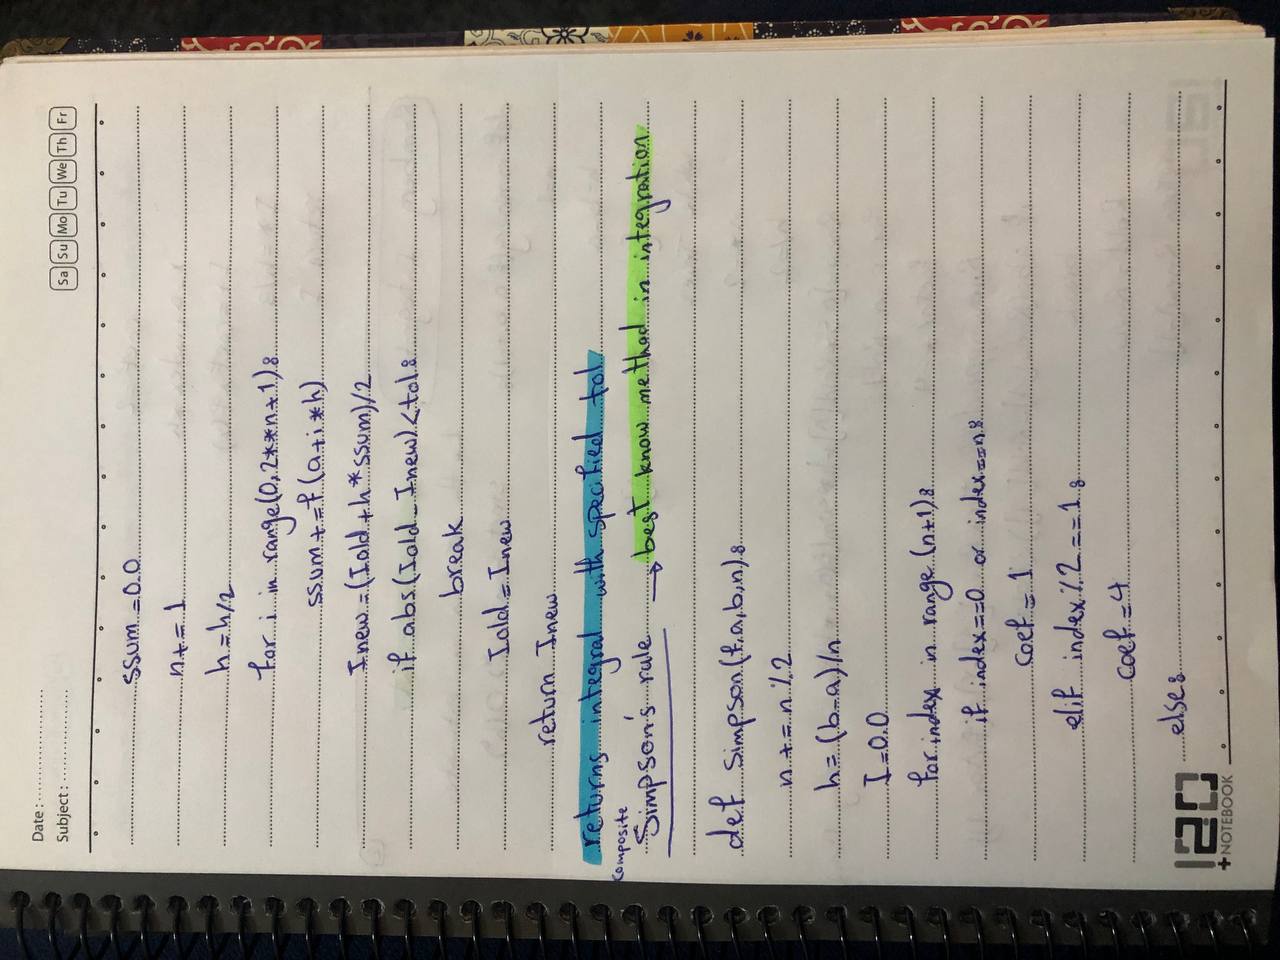 Date : ....................
Subject : ....................
Sa Su Mo Tu We Th Fr
ssum=0.0
n+=1
h=h/2
for i in range(0,2**n+1):
ssum+=f(a+i*h)
Inew=(Iold+h*ssum)/2
if abs(Iold-Inew)<tol:
break
Iold=Inew
return Inew
returns integral with specified tol
Composite
Simpson's rule → best know method in integration
def Simpson(f,a,b,n):
n+=n%2
h=(b-a)/n
I=0.0
for index in range(n+1):
if index==0 or index==n:
coef=1
elif index%2==1:
coef=4
else:
120
+NOTEBOOK